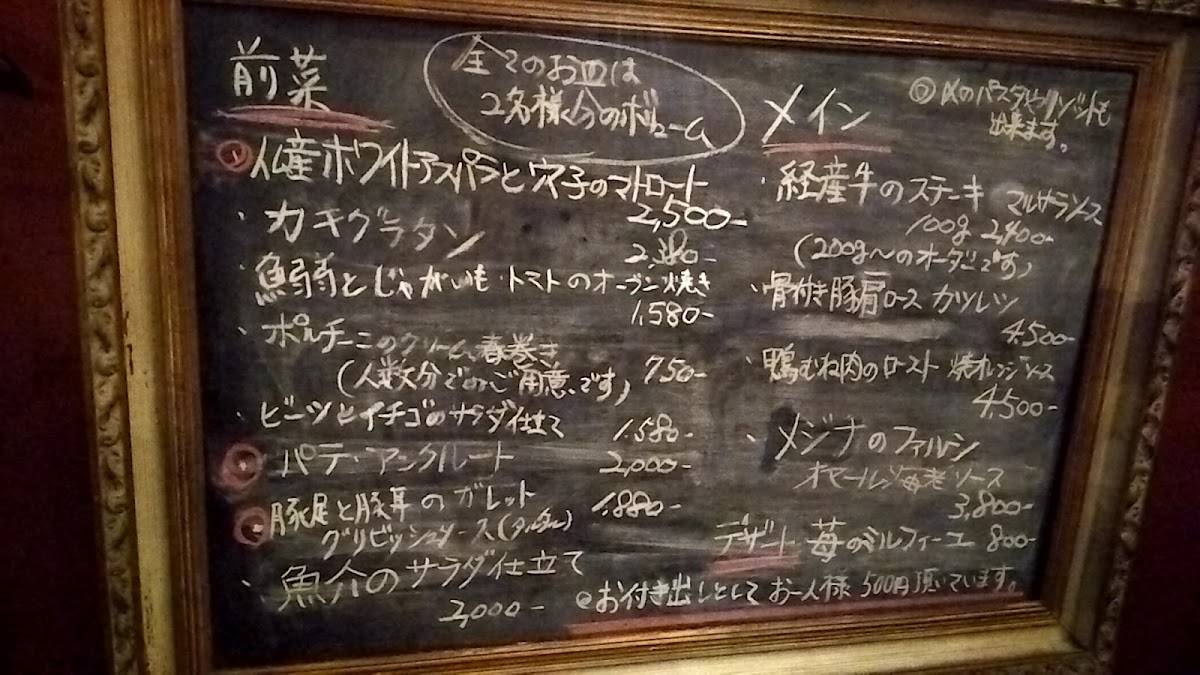 前菜
全てのお皿は
2名様分のボリューム
産ホワイトアスパラと穴子のマトロート
2,500-
・カキグラタン
・魚弱とじゃがいも・トマトのオーブン焼き
1,580-
・ポルチーニのクリーム春巻き
750-
(人数分でのご用意です)
・ビーツとイチゴのサラダ仕立て 1,580-
・パテ・アンクルート 2,000-
・豚足と豚耳のガレット 1,880-
グリビッシュソース(タルタル)
・魚介のサラダ仕立て
2,000-
メイン
◎〆のパスタやリゾットも
出来ます。
・経産牛のステーキ マルサラソース
100g 2,400-
(200g〜のオーダーです)
・骨付き豚肩ロースカツレツ
4,500-
・鴨むね肉のロースト 焼オレンジソース
4,500-
・メジナのファルシ
オマール海老ソース
3,800-
デザート 苺のミルフィーユ 800-
◎お付き出しとしてお一人様500円頂いています。